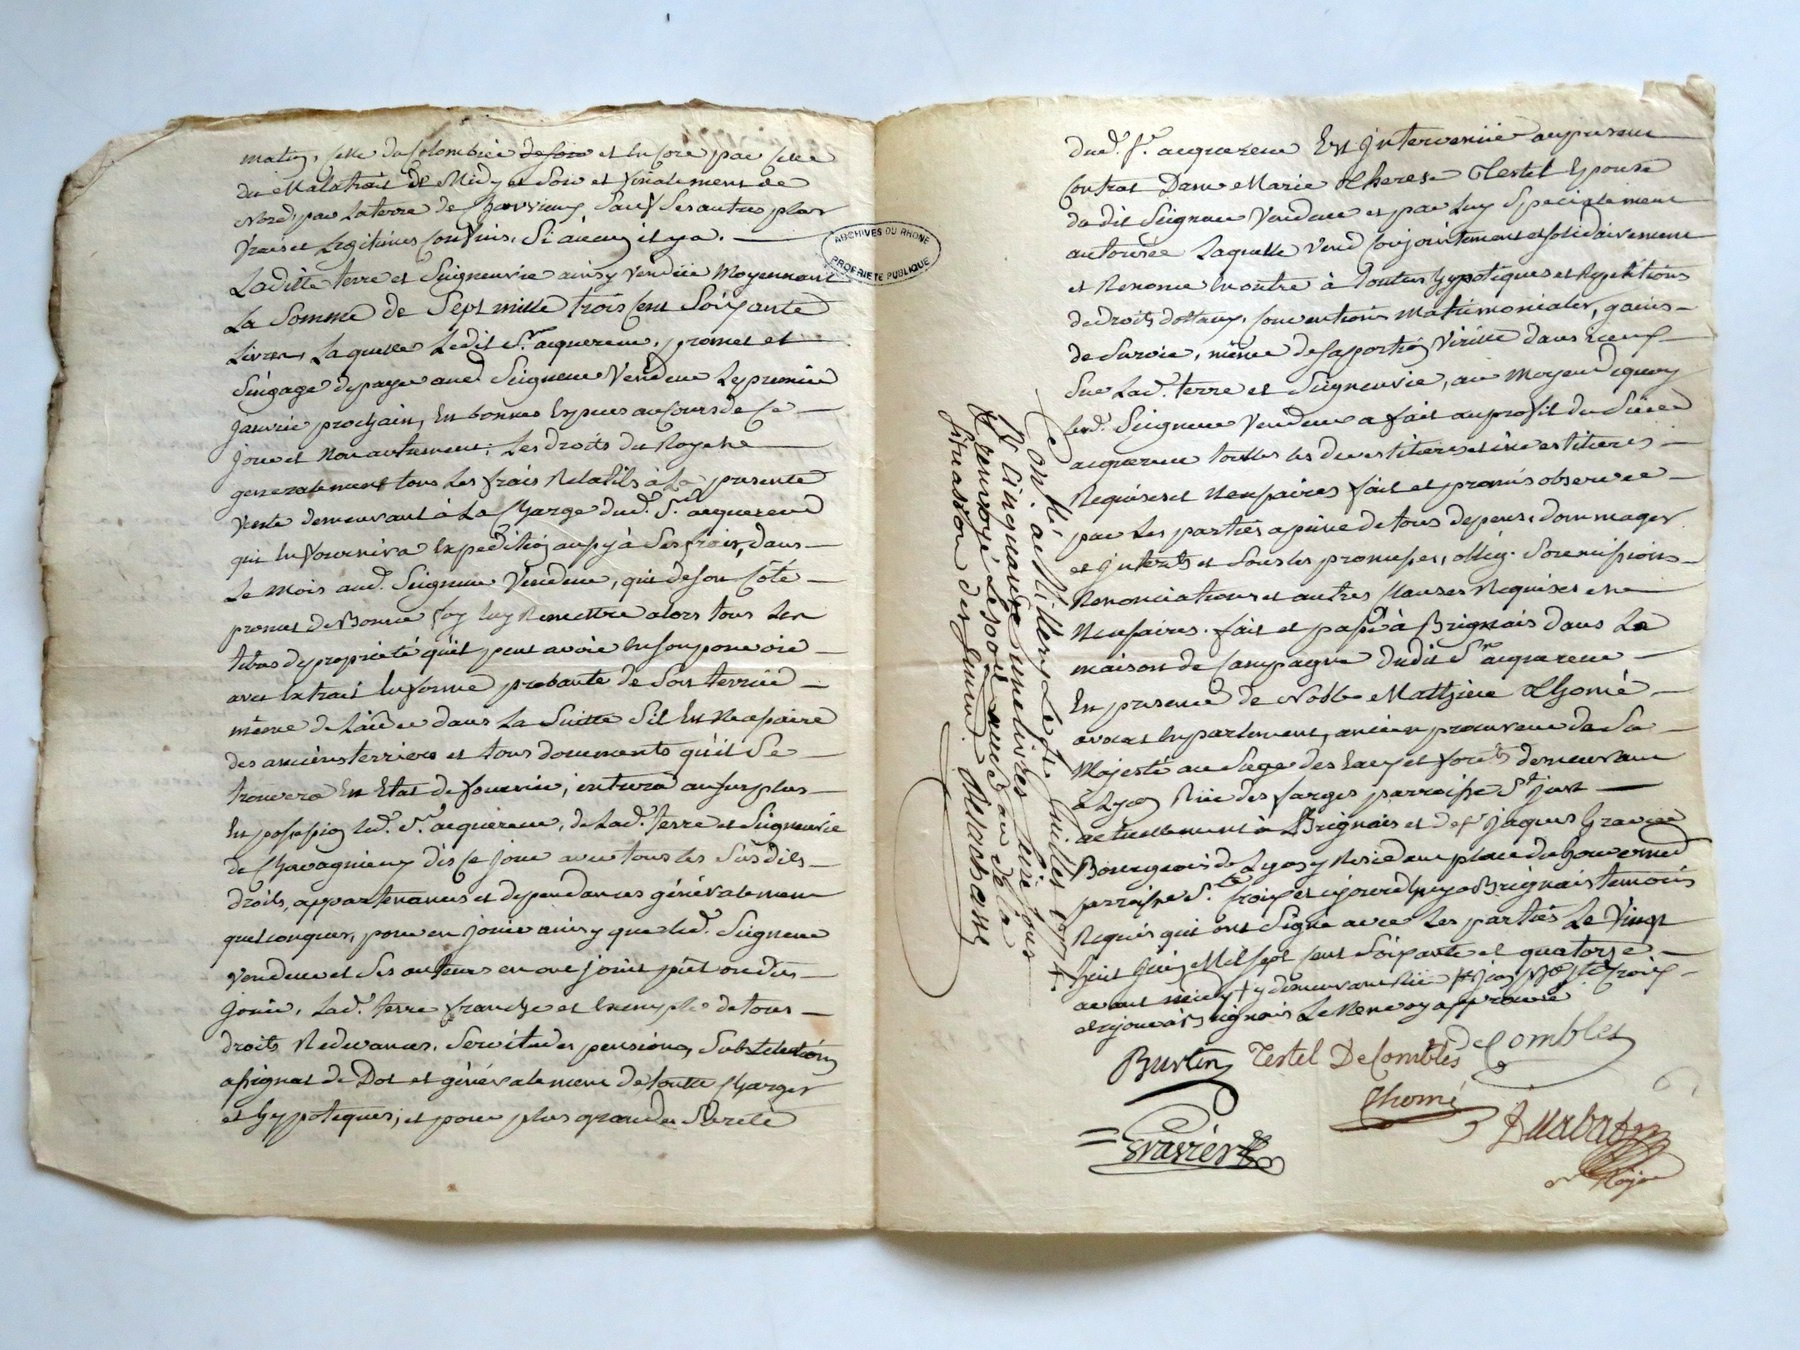 matin, celle du Colombier de soir et encore par celle
du Malatrait de Midy et Soir et finalement de
Nord, par la terre de sauf ses autres plus
vrais et legitimes confins, si aucun il y a.
Laditte terre et Seigneurie ainsy vendüe moyennant
La Somme de Sept mille trois cent Soixante
Livres, Laquelle Ledit Sr. acquereur, promet et
s'engage de payer aud. Seigneur Vendeur Le premier
Janvier prochain, en bonnes Especes au cours de ce
jour et non autrement; Les droits du Roy et
generalement tous les frais Relatifs à La presente
vente demeurant à La Charge dud. Sr. acquereur
qui en fournira expedition aussy à ses frais, dans
Le mois aud. Seigneur Vendeur, qui de son Côté
promet de Bonne foy luy Remettre alors tous Les
titres de proprieté qu'il peut avoir en son pouvoir
avec extrait en forme probante de Son terrier
même de L'aider dans La Suitte S'il Est Necessaire
des anciens terriers et tous documents qu'il Se
trouvera En Etat de fournir, entrera au surplus
En possession led. Sr. acquereur, de Lad. terre et Seigneurie
de Chavagnieux dès ce jour avec tous les Susdits
droits, appartenances et dependances généralement
quelconques, pour en jouir ainsy que led. Seigneur
vendeur et Ses auteurs en ont joüit pût ou dus
joüir, Lad. terre franche et exempte de tous
droits Redevances, Servitudes pensions, Substitution
assignat de Dot et généralement de toutte Charges
et hypoteques; et pour plus grande Sureté
ARCHIVES DU RHONE
PROPRIETE PUBLIQUE
dud. Sr. acquereur Est Intervenüe au present
Contrat Dame Marie Therese Testel Epouse
dudit Seigneur Vendeur et par Luy Specialement
autorisée Laquelle Vend conjointement et solidairement
et Renonce en outre à toutes hypoteques et Repetitions
de droits dottaux, conventions Matrimoniales, gains
de Survie, même de sa portion Virille dans iceux
Sur Lad. terre et Seigneurie, au moyen de quoy
led. Seigneur Vendeur a fait au profit du Sieur
acquereur touttes les devestitures et investitures
Requises et Necessaires fait et promis observer
par Les parties a peine de tous depens, dommages
et interets et sous les promesses, oblig. Soumissions
Renonciations et autres clauses Requises et
Necessaires. fait et passé à Brignais dans La
maison de Campagne dudit Sr. acquereur
En presence de Noble Mathieu Thomé
avocat en parlement, ancien procureur de Sa
Majesté au Siege des Eaux et forets demeurant
à Lyon Rüe des farges parroisse St. Just
actuellement à Brignais et de Sr. Jaques Gravier
Bourgeois de Lyon y Residant place du Gouvernement
parroisse Ste. Croix et cejourdhuy à Brignais temoins
Requis qui ont Signé avec Les parties Le Vingt
huit Juin Mil sept cent Soixante et quatorze
avant midy + y demeurant Rüe
et ce jour à Brignais Le Renvoy approuvé
Burtin Testel DeCombles deCombles
Thomé
Gravier
Con.lé à Millery Le Juillet 1774
R. Cinquante une livres Six sous
Renvoyé Le 100e denier au Bau de la
situation des biens.